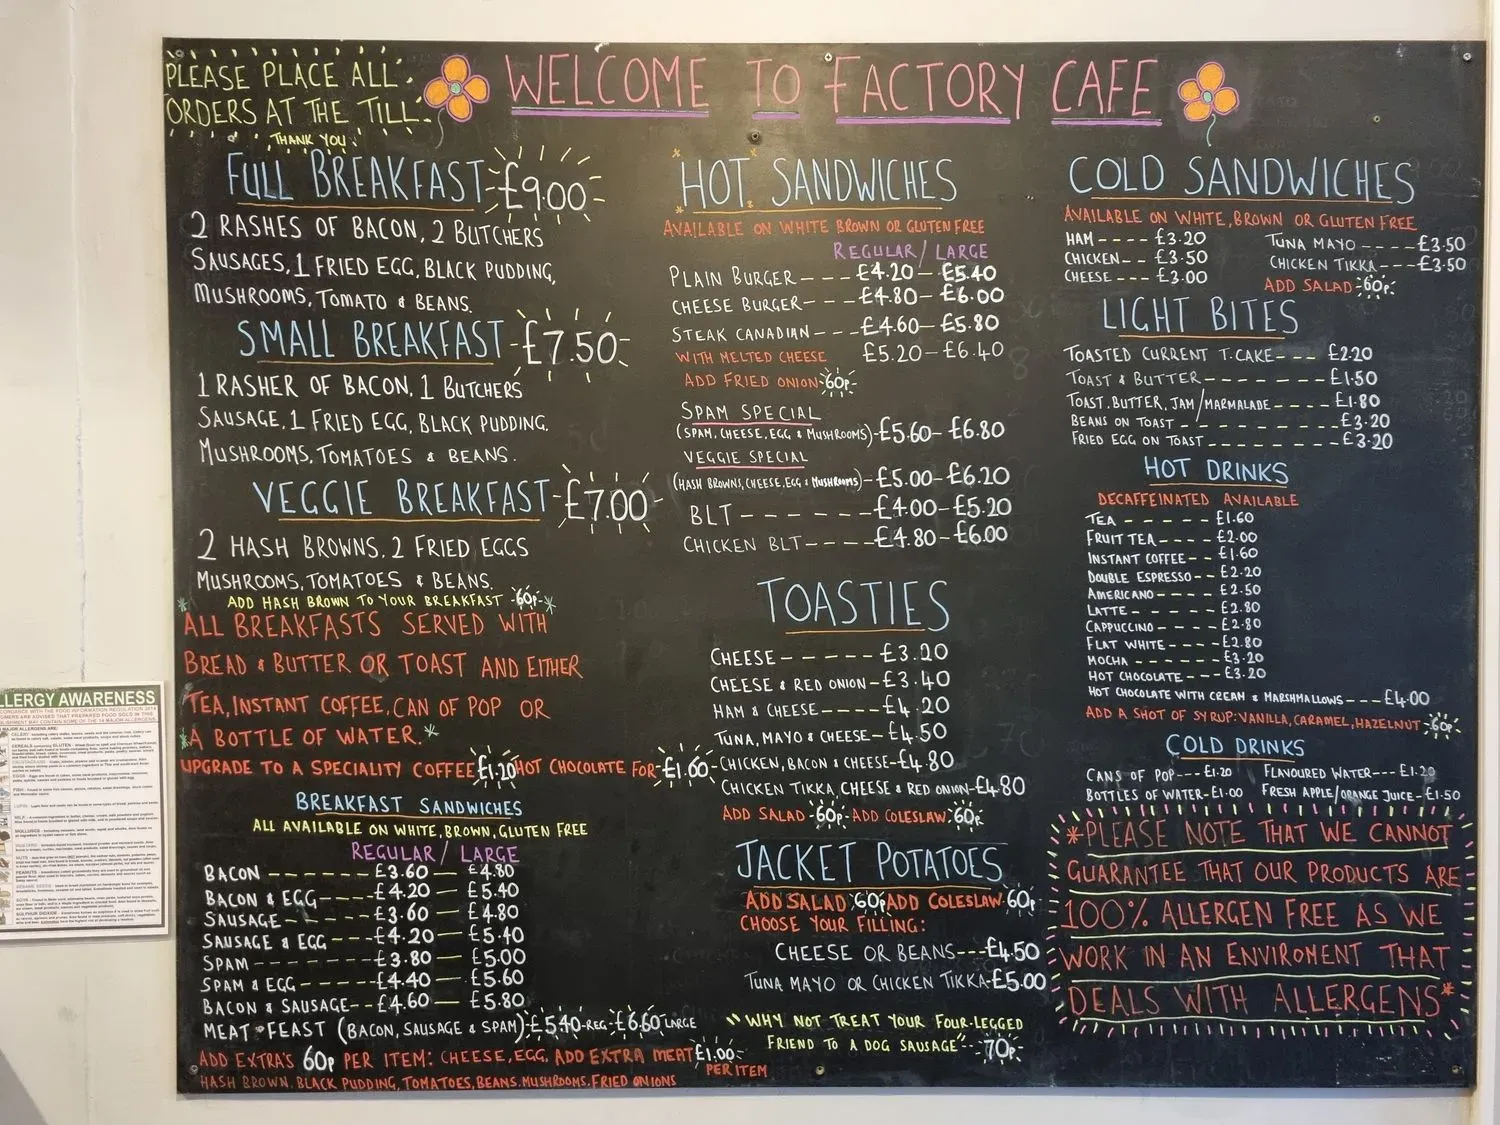 PLEASE PLACE ALL
ORDERS AT THE TILL.
THANK YOU.
WELCOME TO FACTORY CAFE
FULL BREAKFAST £9.00
2 RASHES OF BACON, 2 BUTCHERS
SAUSAGES, 1 FRIED EGG, BLACK PUDDING,
MUSHROOMS, TOMATO & BEANS.
SMALL BREAKFAST - £7.50
1 RASHER OF BACON, 1 BUTCHERS
SAUSAGE, 1 FRIED EGG, BLACK PUDDING.
MUSHROOMS, TOMATOES & BEANS.
VEGGIE BREAKFAST - £7.00
2 HASH BROWNS, 2 FRIED EGGS
MUSHROOMS, TOMATOES & BEANS.
ADD HASH BROWN TO YOUR BREAKFAST 60p
*ALL BREAKFASTS SERVED WITH
BREAD & BUTTER OR TOAST AND EITHER
TEA, INSTANT COFFEE, CAN OF POP OR
A BOTTLE OF WATER.*
UPGRADE TO A SPECIALITY COFFEE £1.20 HOT CHOCOLATE FOR - £1.60
BREAKFAST SANDWICHES
ALL AVAILABLE ON WHITE, BROWN, GLUTEN FREE
REGULAR / LARGE
BACON ------- £3.60 — £4.80
BACON & EGG --- £4.20 — £5.40
SAUSAGE ----- £3.60 — £4.80
SAUSAGE & EGG --- £4.20 — £5.40
SPAM -------- £3.80 — £5.00
SPAM & EGG ---- £4.40 — £5.60
BACON & SAUSAGE -- £4.60 — £5.80
MEAT FEAST (BACON, SAUSAGE & SPAM) - £5.40 REG - £6.60 LARGE
ADD EXTRA'S 60p PER ITEM: CHEESE, EGG, ADD EXTRA MEAT £1.00 PER ITEM
HASH BROWN, BLACK PUDDING, TOMATOES, BEANS, MUSHROOMS, FRIED ONIONS
HOT SANDWICHES
AVAILABLE ON WHITE BROWN OR GLUTEN FREE
REGULAR / LARGE
PLAIN BURGER --- £4.20 - £5.40
CHEESE BURGER --- £4.80 - £6.00
STEAK CANADIAN --- £4.60 - £5.80
WITH MELTED CHEESE £5.20 - £6.40
ADD FRIED ONION 60p
SPAM SPECIAL
(SPAM, CHEESE, EGG & MUSHROOMS) - £5.60 - £6.80
VEGGIE SPECIAL
(HASH BROWNS, CHEESE, EGG & MUSHROOMS) - £5.00 - £6.20
BLT ------ £4.00 - £5.20
CHICKEN BLT ---- £4.80 - £6.00
TOASTIES
CHEESE ----- £3.20
CHEESE & RED ONION - £3.40
HAM & CHEESE ---- £4.20
TUNA, MAYO & CHEESE - £4.50
CHICKEN, BACON & CHEESE - £4.80
CHICKEN TIKKA, CHEESE & RED ONION - £4.80
ADD SALAD 60p - ADD COLESLAW 60p
JACKET POTATOES
ADD SALAD 60p ADD COLESLAW 60p
CHOOSE YOUR FILLING:
CHEESE OR BEANS --- £4.50
TUNA MAYO OR CHICKEN TIKKA - £5.00
"WHY NOT TREAT YOUR FOUR-LEGGED
FRIEND TO A DOG SAUSAGE" -- 70p
COLD SANDWICHES
AVAILABLE ON WHITE, BROWN OR GLUTEN FREE
HAM ---- £3.20
CHICKEN -- £3.50
CHEESE --- £3.00
TUNA MAYO ---- £3.50
CHICKEN TIKKA --- £3.50
ADD SALAD 60p
LIGHT BITES
TOASTED CURRENT T.CAKE --- £2.20
TOAST & BUTTER ------- £1.50
TOAST, BUTTER, JAM/MARMALADE ---- £1.80
BEANS ON TOAST ------- £3.20
FRIED EGG ON TOAST ------- £3.20
HOT DRINKS
DECAFFEINATED AVAILABLE
TEA ----- £1.60
FRUIT TEA ---- £2.00
INSTANT COFFEE -- £1.60
DOUBLE ESPRESSO -- £2.20
AMERICANO --- £2.50
LATTE ----- £2.80
CAPPUCCINO --- £2.80
FLAT WHITE ---- £2.80
MOCHA ----- £3.20
HOT CHOCOLATE --- £3.20
HOT CHOCOLATE WITH CREAM & MARSHMALLOWS --- £4.00
ADD A SHOT OF SYRUP: VANILLA, CARAMEL, HAZELNUT - 60p
COLD DRINKS
CANS OF POP --- £1.20
BOTTLES OF WATER - £1.00
FLAVOURED WATER --- £1.20
FRESH APPLE/ORANGE JUICE - £1.50
*PLEASE NOTE THAT WE CANNOT
GUARANTEE THAT OUR PRODUCTS ARE
100% ALLERGEN FREE AS WE
WORK IN AN ENVIROMENT THAT
DEALS WITH ALLERGENS*
LLERGY AWARENESS